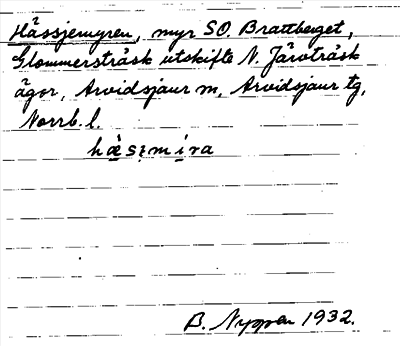 Hässjemyren, myr SO. Brattberget,
Glommersträsk utskifte N. Järvträsk
ägor, Arvidsjaur sn, Arvidsjaur tg,
Norrb. l.
hä̀sɪmi̱ra
B. Nygren 1932.